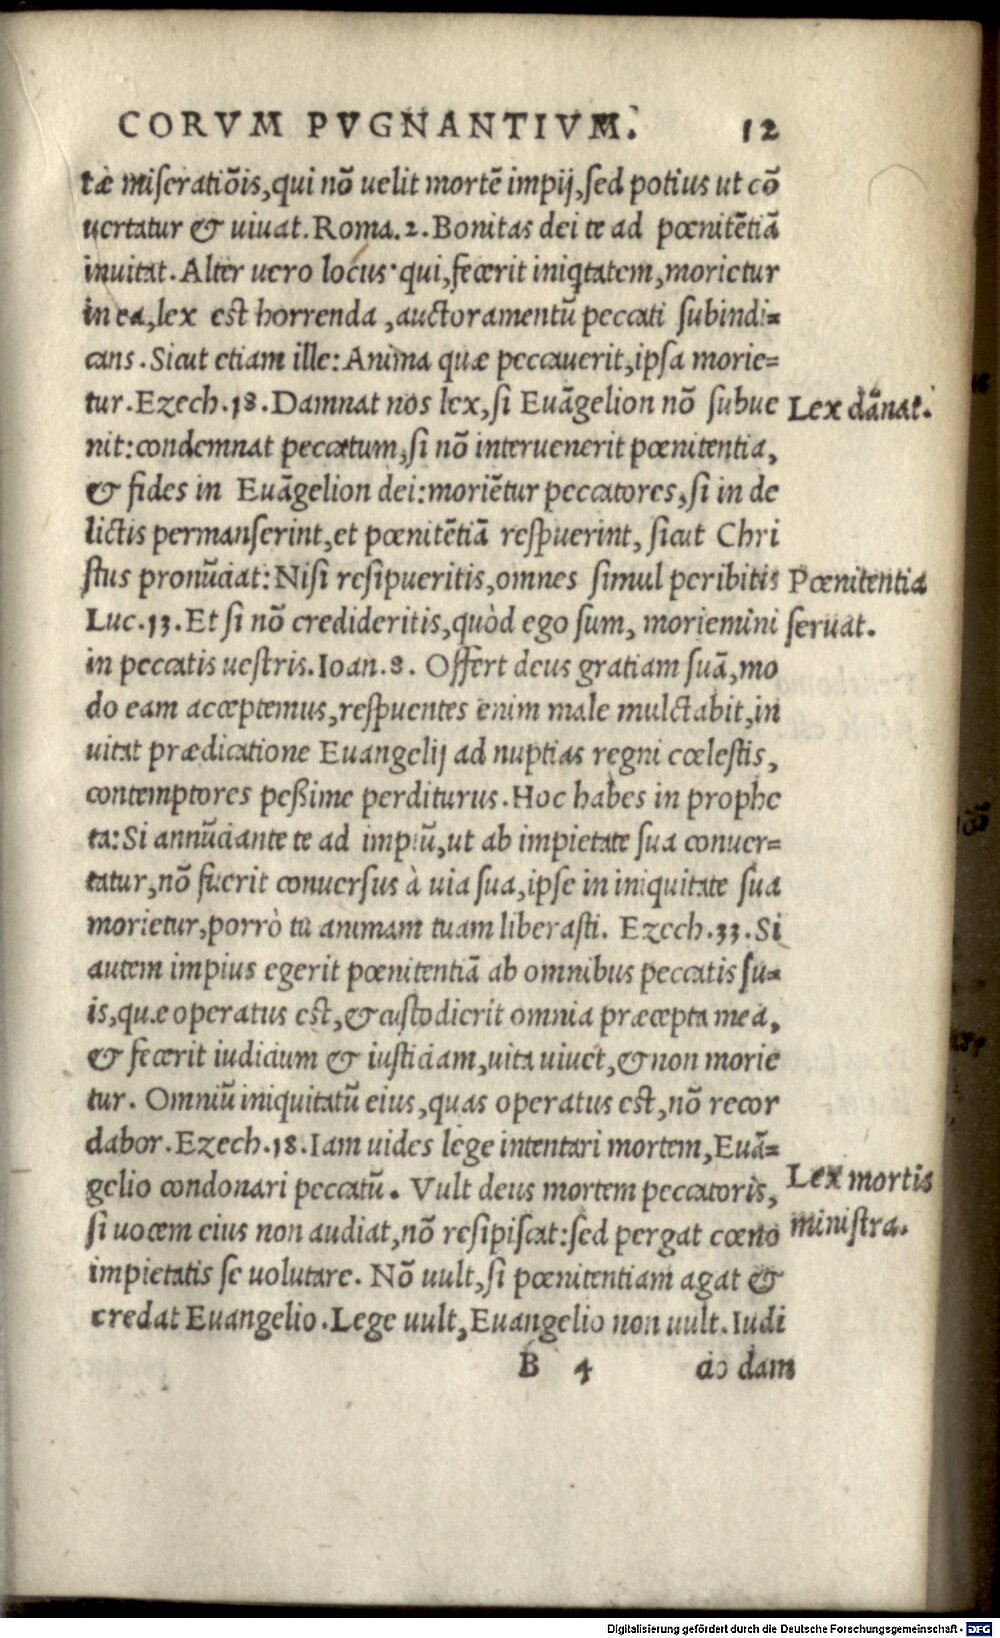 CORVM PVGNANTIVM. 12
tæ miseratiõis, qui nõ uelit mortẽ impij, sed potius ut cõ
uertatur & uiuat. Roma. 2. Bonitas dei te ad pœnitẽtiã
inuitat. Alter uero locus qui, fecerit iniqtatem, morietur
in ea, lex est horrenda, auctoramentũ peccati subindi=
cans. Sicut etiam ille: Anima quæ peccauerit, ipsa morie=
tur. Ezech. 18. Damnat nos lex, si Euãgelion nõ subue
Lex dãnat.
nit: condemnat peccatum, si nõ interuenerit pœnitentia,
& fides in Euãgelion dei: moriẽtur peccatores, si in de
lictis permanserint, et pœnitẽtiã respuerint, sicut Chri
stus pronũciat: Nisi resipueritis, omnes simul peribitis
Pœnitentia
Luc. 13. Et si nõ credideritis, quòd ego sum, moriemini
seruat.
in peccatis uestris. Ioan. 8. Offert deus gratiam suã, mo
do eam acceptemus, respuentes enim male mulctabit, in
uitat prædicatione Euangelij ad nuptias regni cœlestis,
contemptores peßime perditurus. Hoc habes in prophe
ta: Si annũciante te ad impiũ, ut ab impietate sua conuer=
tatur, nõ fuerit conuersus à uia sua, ipse in iniquitate sua
morietur, porrò tu animam tuam liberasti. Ezech. 33. Si
autem impius egerit pœnitentiã ab omnibus peccatis su=
is, quæ operatus est, & custodierit omnia præcepta mea,
& fecerit iudicium & iusticiam, uita uiuet, & non morie
tur. Omniũ iniquitatũ eius, quas operatus est, nõ recor
dabor. Ezech. 18. Iam uides lege intentari mortem, Euã=
gelio condonari peccatũ. Vult deus mortem peccatoris,
Lex mortis
si uocem eius non audiat, nõ resipiscat: sed pergat cœno
ministra.
impietatis se uolutare. Nõ uult, si pœnitentiam agat &
credat Euangelio. Lege uult, Euangelio non uult. Iudi
B 4 ao dam
Digitalisierung gefördert durch die Deutsche Forschungsgemeinschaft - DFG